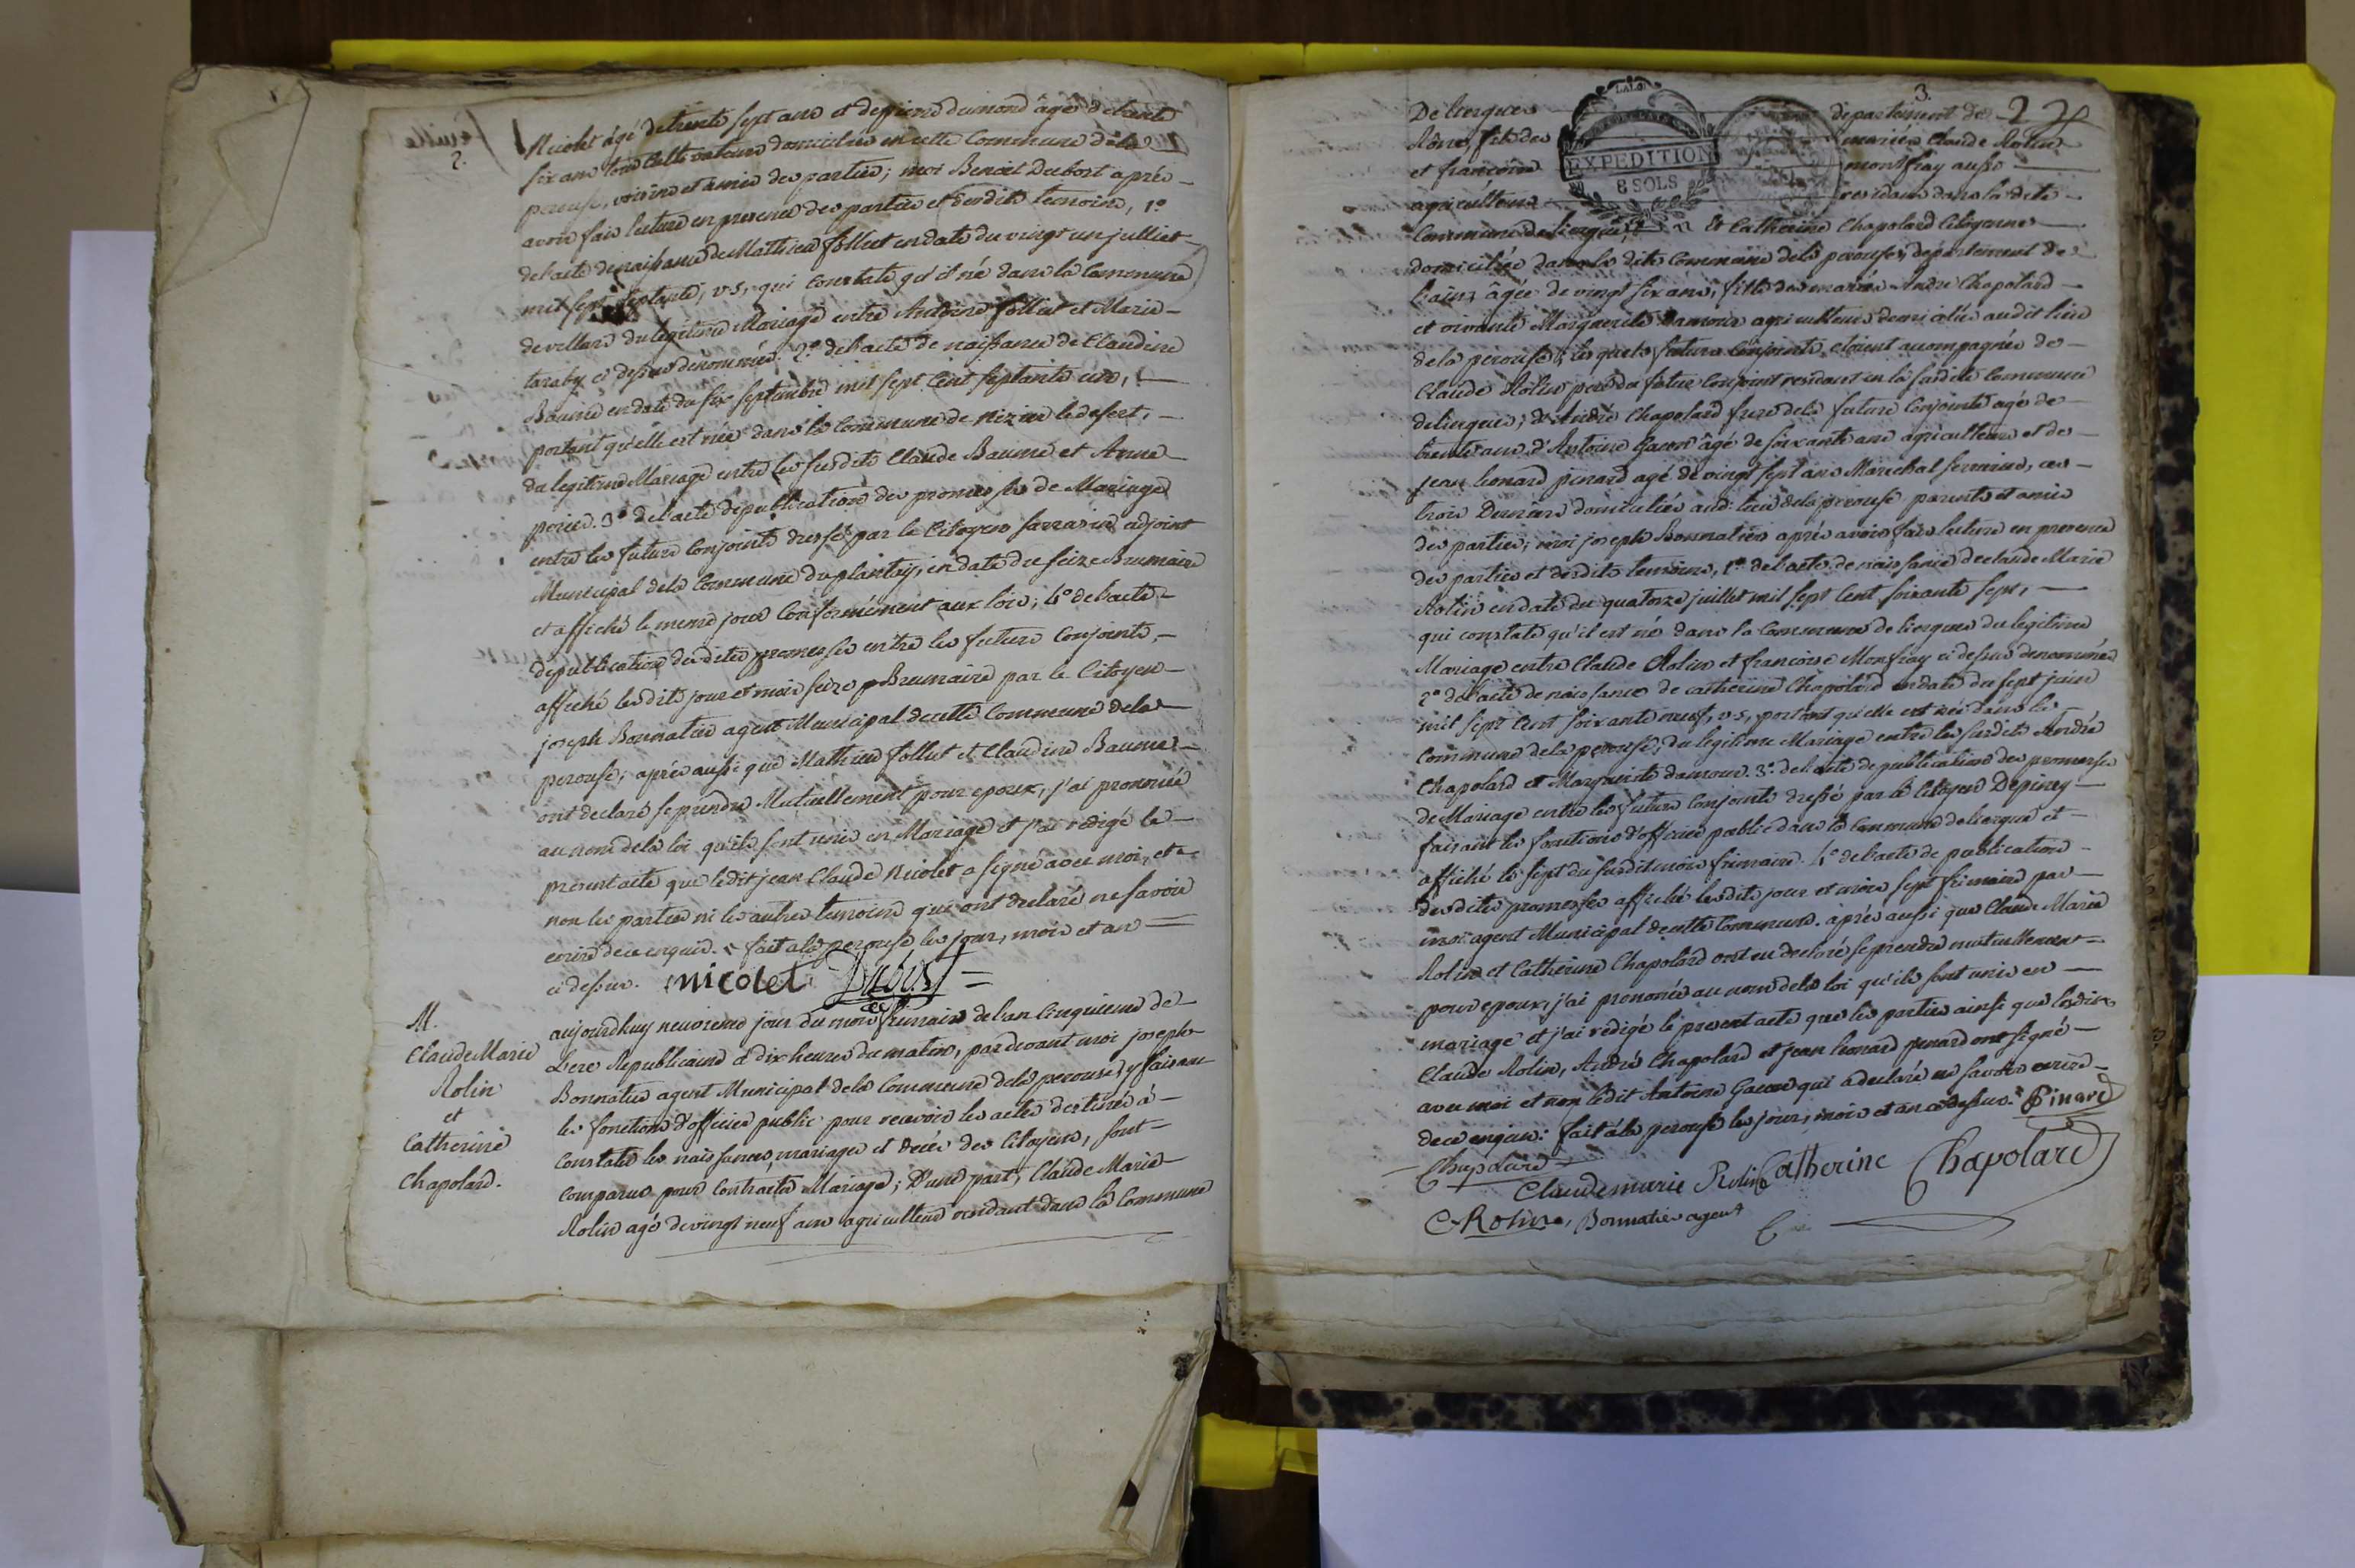 Nicolet âgé de trente sept ans et de pierre dumond âgé de trente
six ans tous cultivateurs domiciliés en cette Commune de la
perouse, voisins et amis des parties; moi Benoit Dubost aprés
avoir fais lecture en presence des parties et desdits temoins, 1º
de l'acte de naissance de Mathieu follut en date du vingt un julliet
mil sept septante, v.s, qui constate qu'il né dans la Commune
de villars du legitime Mariage entre Antoine follut et Marie
taraby ci dessus dénommés. 2º de l'acte de naissance de Claudine
Baume en date du six septembre mil sept cent septante un,
portant qu'elle est née dans la Commune de nizier le desert,
du legitime Mariage entre les susdits Claude Baume et Anne
perier. 3º de l'acte de publication des promesses de Mariage
entre les futurs Conjoints dressé par le Citoyen sarrasin adjoint
Municipal de la Commune du plantay, en date du seize Brumaire
et affiché le meme jour Conformément aux lois; 4º de l'acte
de publication desdites promesses entre les futurs Conjoints,
affiché lesdits jour et mois seize Brumaire par le Citoyen
joseph Bonnatier agent Municipal de cette Commune de la
perouse; aprés aussi que Mathieu follut et Claudine Baume
ont declaré se prendre Mutuellement pour epoux, j'ai prononcé
au nom de la loi qu'ils sont unis en Mariage et j'ai redigé le
present acte que ledit jean Claude Nicolet a signé avec moi, et
non les parties ni les autres temoins qui ont declaré ne savoir
ecrire de ce enquis. fait a la perouse les jour, mois et an
ci dessus. nicolet Dubost
M.
Claude Marie
Rolin
et
Catherine
Chapolard.
aujourdhuy neuvieme jour du mois frimaire de l'an Cinquieme de
L'ere Republicaine à dix heures du matin, pardevant moi joseph
Bonnatier agent Municipal de la Commune de la perouse, y faisant
les fonctions d'officier public pour recevoir les actes destinés à
Constater les naissances, mariages et decés des Citoyens, sont
Comparus pour Contracter Mariage; D'une part, Claude Marie
Rolin agé de vingt neuf ans agriculteur residant dans la Commune
3.
De liergues departement de
Rône, fils des mariés Claude Rolin
et francoise montfray aussi
agriculteurs residans dans la dite
Commune de liergue; Et Catherine Chapolard Citoyenne
EXPEDITION
8 SOLS
domiciliée dans la dite Commune de la perouse, departement de
l'ain, âgée de vingt six ans, fille des mariés André Chapolard
et vivante Marguerite Damour agriculteurs domiciliés audit lieu
de la perouse; lesquels futurs Conjoints etoient accompagnés de
Claude Rolin pere du futur Conjoint residant en la susdite Commune
de liergues; d'André Chapolard frere de la future Conjointe agé de
trente ans, d'Antoine Gacon âgé de soixante ans agriculteurs et de
jean leonard pinard agé de vingt sept ans Marechal serrurier, ces
trois Derniers domiciliés aud: lieu de la perouse parents et amis
des parties; moi joseph Bonnatier aprés avoir fais lecture en presence
des parties et desdits temoins, 1º de l'acte de naissance de claude Marie
Rolin en date du quatorze juillet mil sept Cent soixante sept,
qui constate qu'il est né dans la Commune de liergues du legitime
Mariage entre Claude Rolin et francoise Monfray ci dessus denommés
2º de l'acte de naissance de catherine Chapolard en date du sept juin
mil sept Cent soixante neuf, v.s, portant qu'elle est née dans la
Commune de la perouse, du legitime Mariage entre les susdits André
Chapolard et Marguerite damour. 3º de l'acte de publication des promesses
de Mariage entre les futurs Conjoints dressé par le Citoyen Depiney
faisant les fonctions d'officier public dans la Commune de liergue et
affiché le sept du susdit mois frimaire. 4º de l'acte de publication
desdites promesses affiché lesdits jour et mois sept frimaire par
moi agent Municipal de cette Commune. aprés aussi que Claude Marie
Rolin et Catherine Chapolard ont eu declaré se prendre mutuellement
pour epoux, j'ai prononcé au nom de la loi qu'ils sont unis en
mariage et j'ai redigé le present acte que les parties ainsi que lesdits
Claude Rolin, André Chapolard et jean leonard pinard ont signé
avec moi et non ledit Antoine Gacon qui a declaré ne savoir ecrire
de ce enquis: fait à la perouse les jour, mois et an ci dessus. Pinard
Chapolard
Claudemarie Rolin Catherine Chapolard
C. Rolin, Bonnatier agent